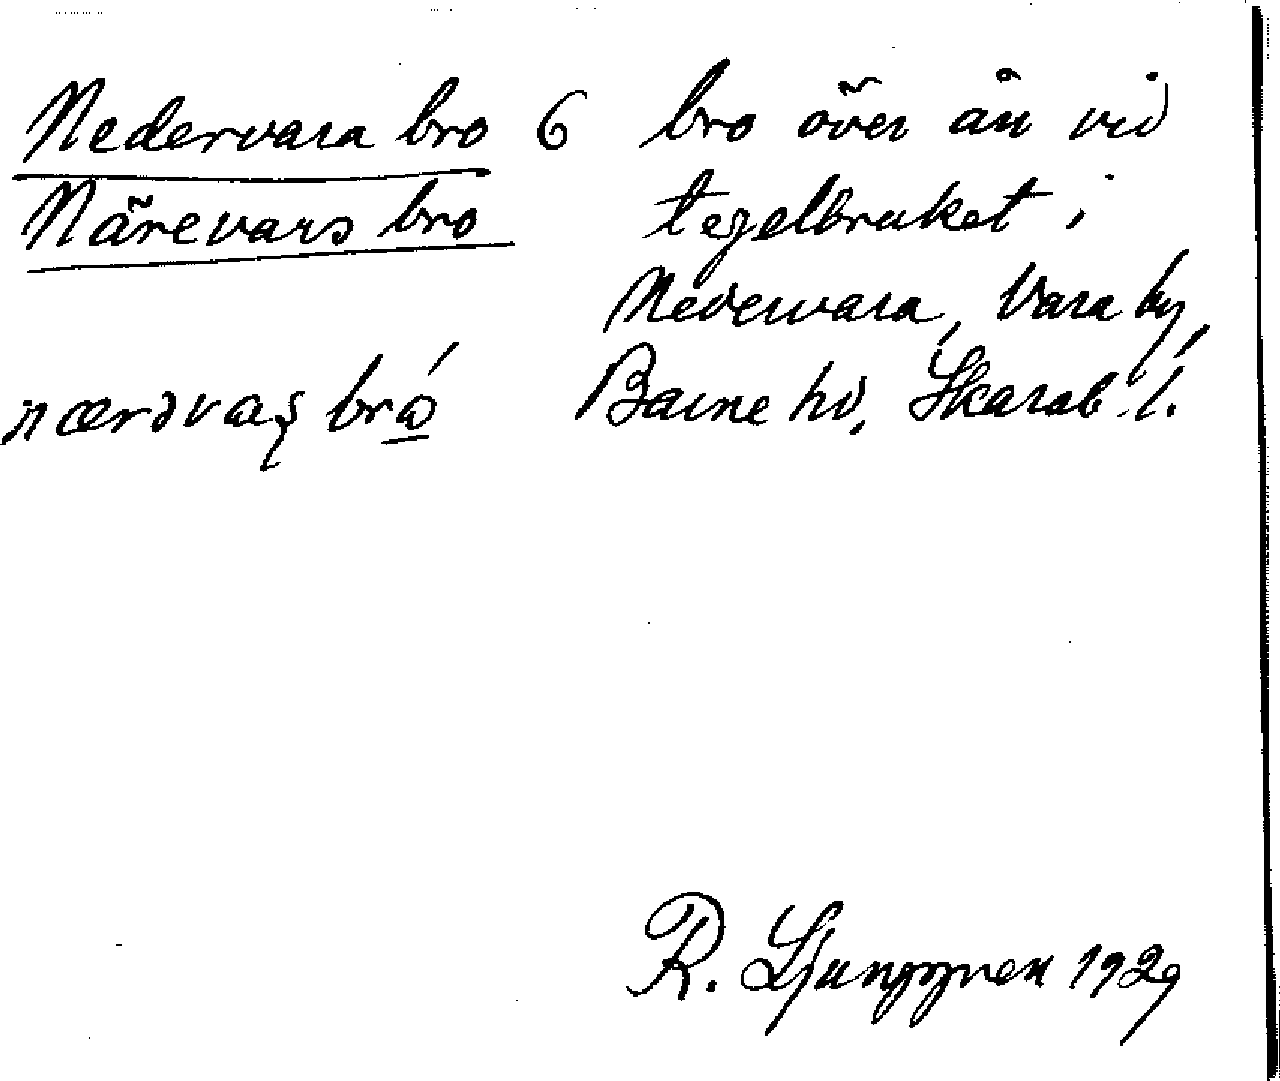 Nedervara bro 6 bro över ån vid
Närevars bro tegelbruket i
Nedervara, Vara by,
Barne hd, Skarab. l.
R. Ljunggren 1929